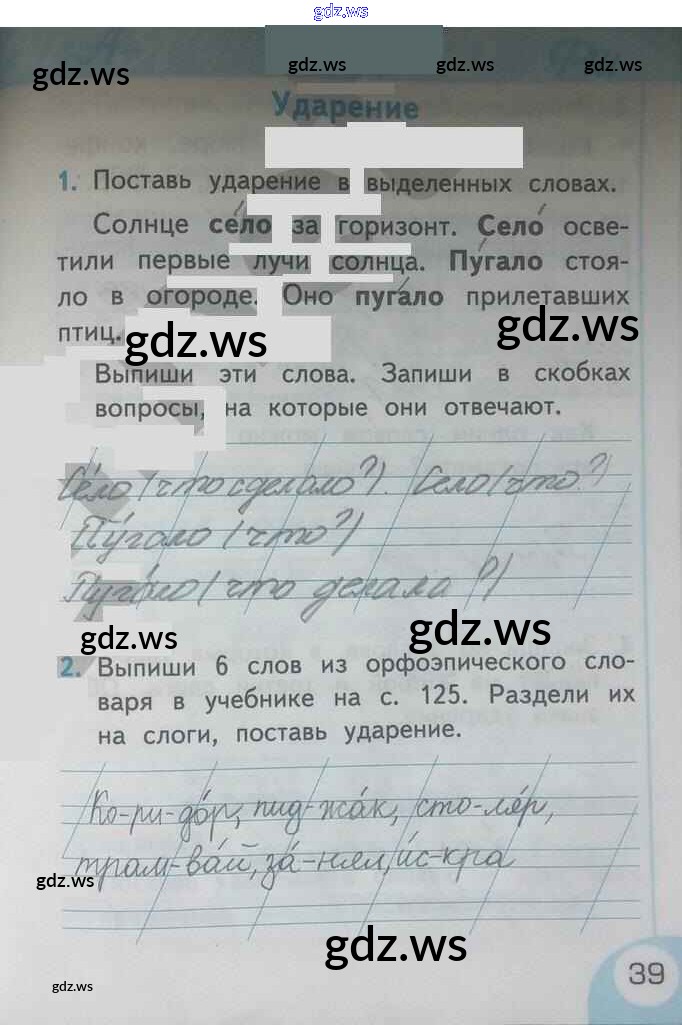 gdz.ws
gdz.ws
gdz.ws
gdz.ws
gdz.ws
Ударение
1. Поставь ударение в выделенных словах.
Солнце се́ло за горизонт. Село́ осве-
тили первые лучи солнца. Пу́гало стоя-
ло в огороде. Оно пуга́ло прилетавших
птиц.
gdz.ws
gdz.ws
Выпиши эти слова. Запиши в скобках
вопросы, на которые они отвечают.
Се́ло (что сделало?). Село (что?)
Пу́гало (что?)
Пуга́ло (что делала?)
gdz.ws
gdz.ws
2. Выпиши 6 слов из орфоэпического сло-
варя в учебнике на с. 125. Раздели их
на слоги, поставь ударение.
Ко-ри-до́р, пид-жа́к, сто-ля́р,
трам-ва́й, за́-нял, и́с-кра
gdz.ws
gdz.ws
39
gdz.ws